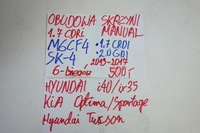 OBUDOWA SKRZYNI
1.7 CDRi MANUAL
M6CF4 • 1.7 CRDI
SK-4 • 2.0 GDI
2013-2017
6-biegów 500 F
HYUNDAI i40/ix35
KiA Optima/Sportage
Hyundai Tucson